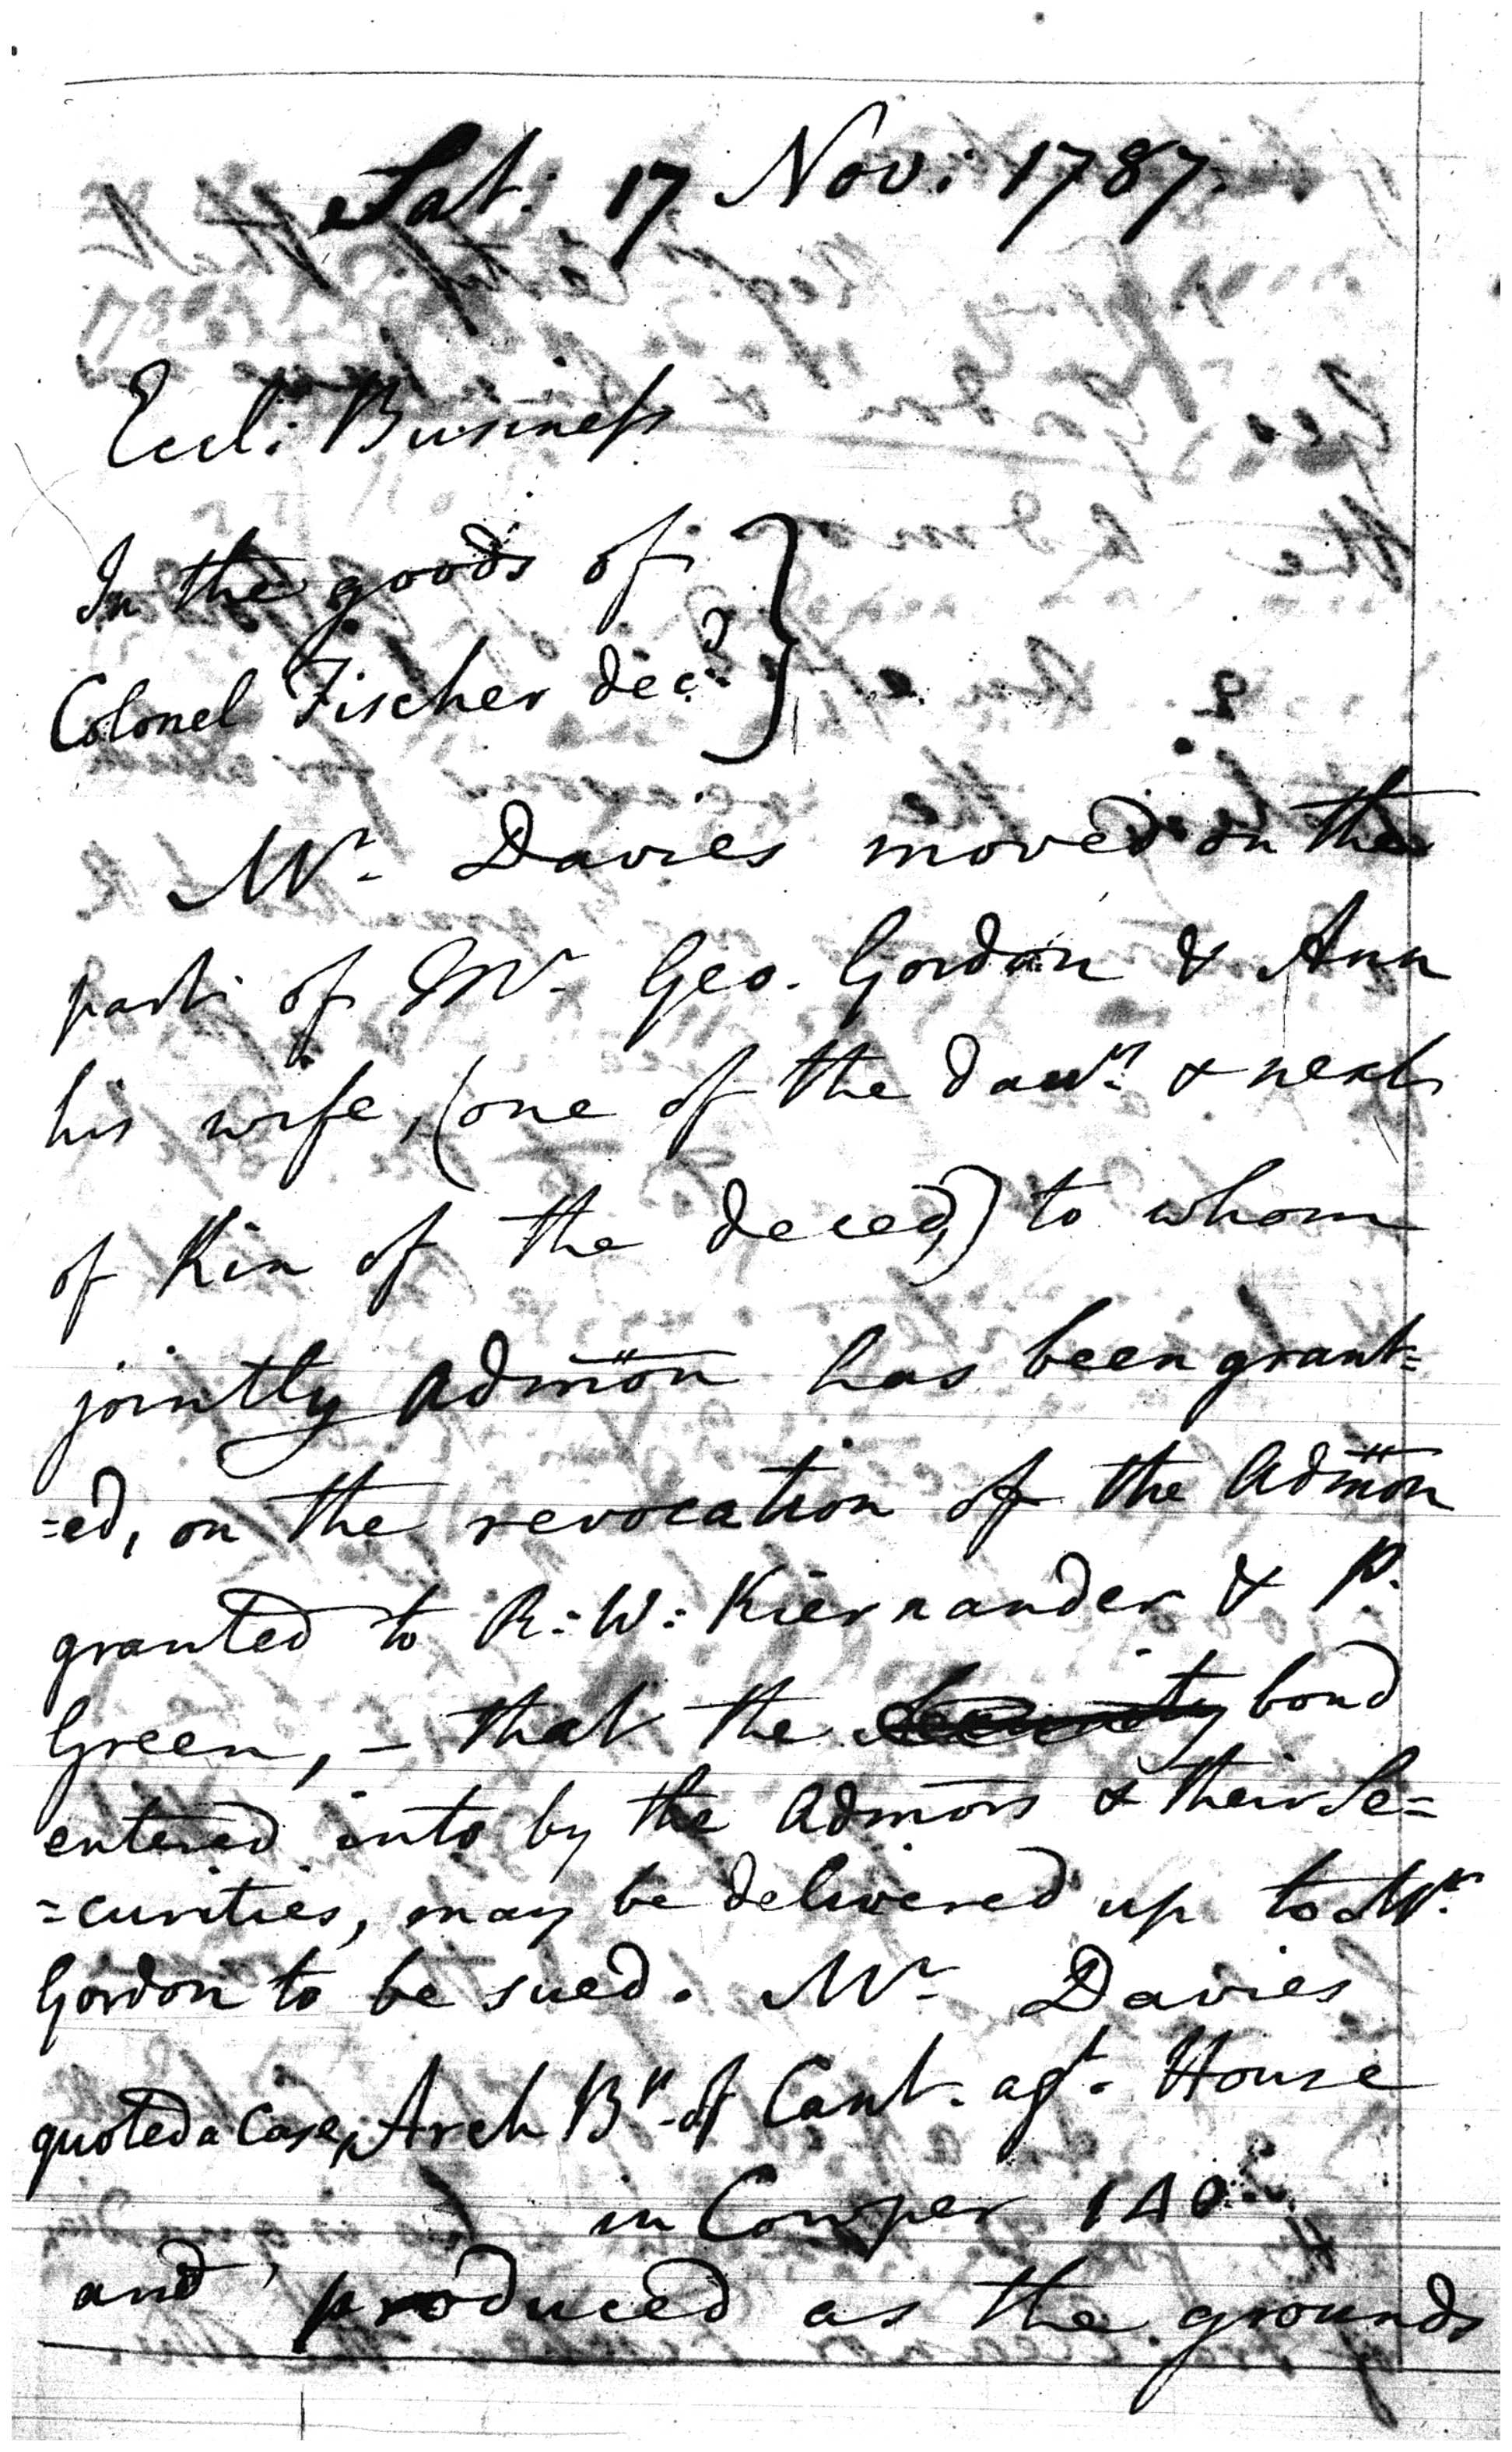 Sat: 17 Nov: 1787.
Eccl: Business
In the goods of
Colonel Fischer decd.
Mr. Davies moved on the
part of Mr. Geo. Gordon & Ann
his wife, (one of the daurs. & next
of Kin of the deced,) to whom
jointly admõn has been grant=
=ed, on the revocation of the admõn
granted to R: W: Kiernander & P.
Green, - that the security bond
entered into by the admors & their Se=
=curities, may be delivered up to Mr.
Gordon to be sued. Mr. Davies
quoted a case, Arch Bp. of Cant. agt. House
in Cowper 140.
and produced as the grounds